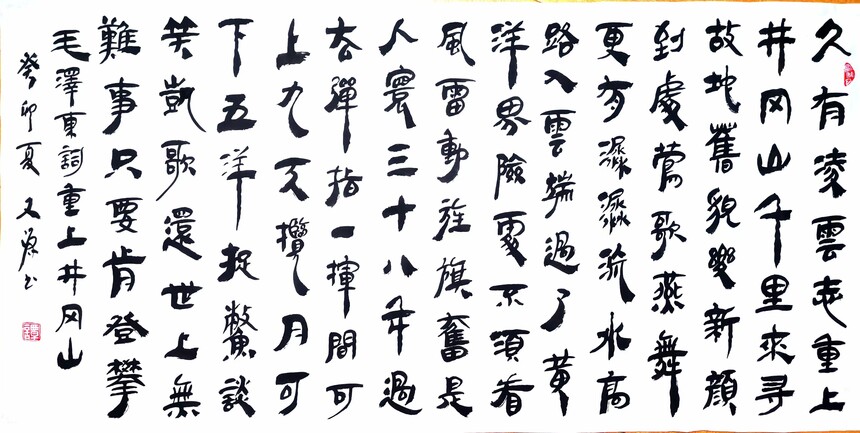 久有凌雲志重上
井冈山千里來尋
故地舊貌變新顏
到處鶯歌燕舞
更有潺潺流水高
路入雲端過了黃
洋界險處不須看
風雷動旌旗奮是
人寰三十八年過
去彈指一揮間可
上九天攬月可
下五洋捉鱉談
笑凱歌還世上無
難事只要肯登攀
毛澤東詞重上井冈山
癸卯夏